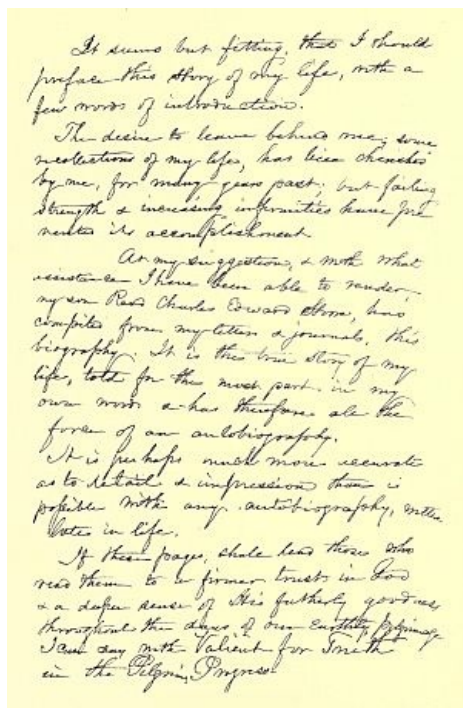 It seems but fitting, that I should
preface this story of my life, with a
few words of introduction.
The desire to leave behind me, some
recollections of my life, has been cherished
by me, for many years past; but failing
strength & increasing infirmities have pre
vented its accomplishment
At my suggestion, & with what
assistance I have been able to render,
my son Rev Charles Edward Stowe, has
compiled from my letters & journals, this
biography. It is this true story of my
life, told for the most part, in my
own words & has therefore all the
force of an autobiography.
It is perhaps much more accurate
as to detail & impression than is
possible with any autobiography, written
later in life.
If these pages, shall lead those who
read them to a firmer trust in God
& a deeper sense of His fatherly goodness
throughout the days of our Earthly pilgrimage
I can say with Valient for Truth
in the Pilgrims Progress